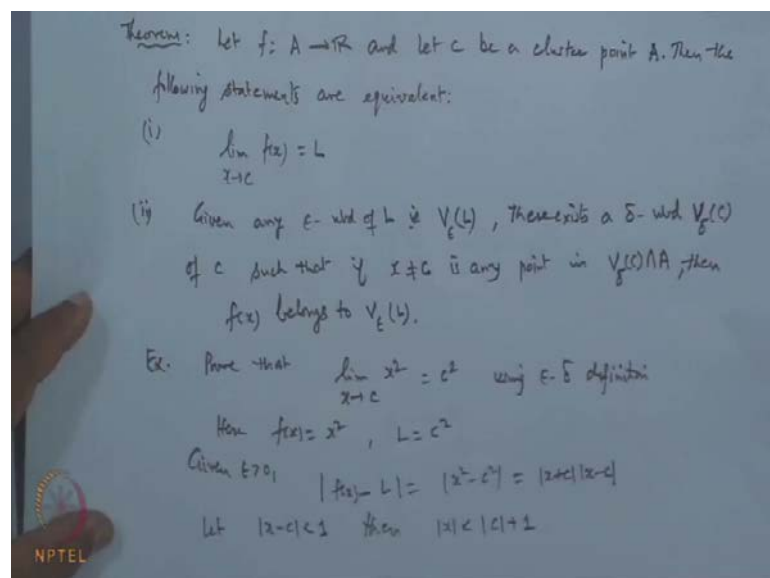 Theorem: Let f: A → R and let c be a cluster point A. Then the
following statements are equivalent:
(i) lim f(x) = L
x→c
(ii) Given any ε- nbd of L ie V_ε(L), there exists a δ- nbd V_δ(c)
of c such that if x ≠ c is any point in V_δ(c) ∩ A, then
f(x) belongs to V_ε(L).
Ex. Prove that lim x² = c² using ε-δ definition
x→c
Here f(x) = x², L = c²
Given ε>0, |f(x) - L| = |x²-c²| = |x+c||x-c|
Let |x-c|<1 then |x| < |c|+1
NPTEL